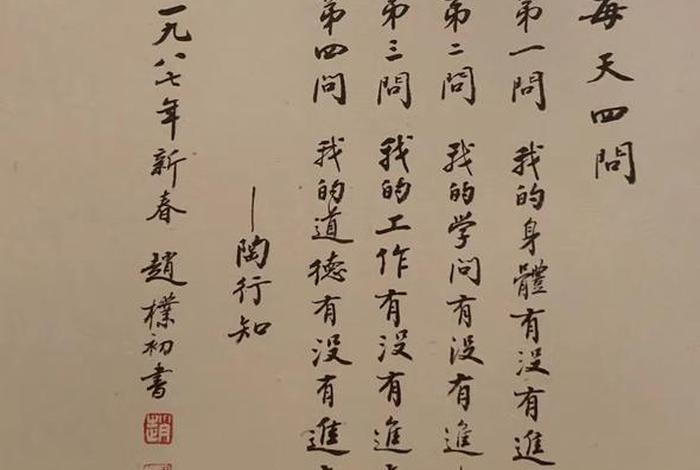 每天四問
第一問 我的身體有没有進
第二問 我的学问有没有進
第三問 我的工作有没有進
第四問 我的道德有没有進
—陶行知
一九八七年新春 趙樸初書
趙